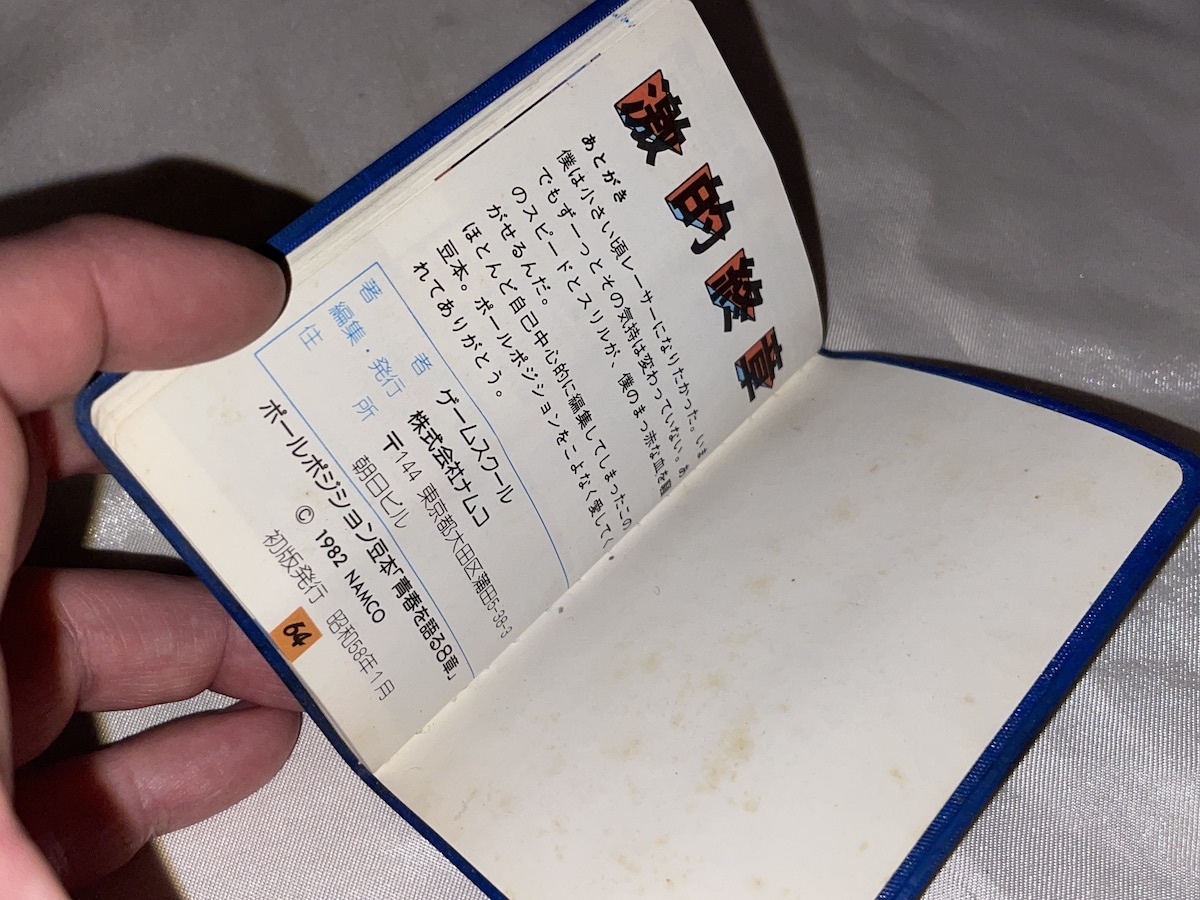 激的終章
あとがき
僕は小さい頃レーサーになりたかった。いま
でもずーっとその気持は変わっていない。あ
のスピードとスリルが、僕のまっ赤な血を騒
がせるんだ。
ほとんど自己中心的に編集してしまったこの
豆本。ポールポジションをこよなく愛してく
れてありがとう。
著者 ゲームスクール
編集・発行 株式会社ナムコ
住所 〒144 東京都大田区蒲田5-38-3
朝日ビル
ポールポジション豆本「青春を語る8章」
© 1982 NAMCO
初版発行 昭和58年1月
64